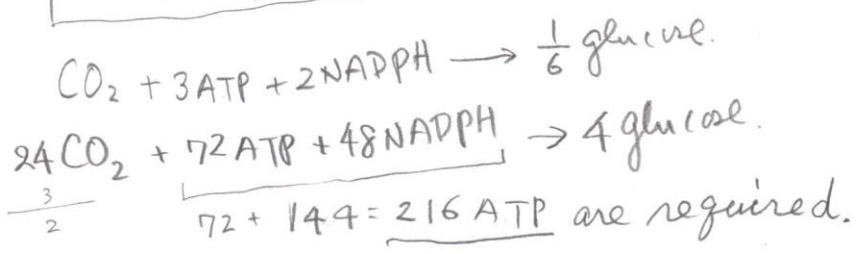 CO₂ + 3ATP + 2NADPH → 1/6 glucose.
24CO₂ + 72ATP + 48NADPH → 4 glucose.
3
2
72 + 144 = 216 ATP are required.